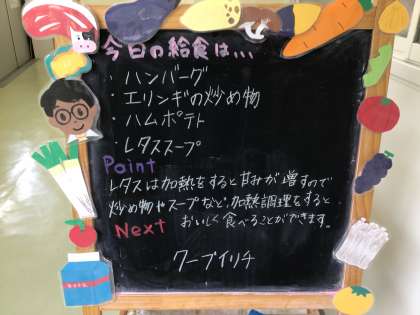 今日の給食は...
・ハンバーグ
・エリンギの炒め物
・ハムポテト
・レタススープ
Point
レタスは加熱をすると甘みが増すので
炒め物やスープなど、加熱調理をすると
おいしく食べることができます。
Next
クーブイリチ